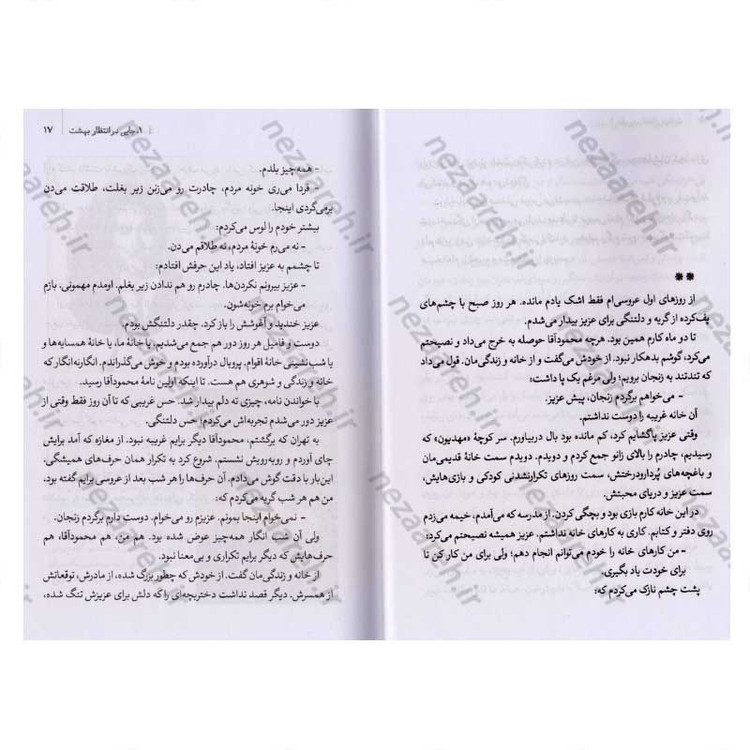 **
از روزهای اول عروسی‌ام فقط اشک یادم مانده. هر روز صبح با چشم‌های
پف‌کرده از گریه و دلتنگی برای عزیز بیدار می‌شدم.
تا دو ماه کارم همین بود. هرچه محمودآقا حوصله به خرج می‌داد و نصیحتم
می‌کرد، گوشم بدهکار نبود. از خودش می‌گفت و از خانه و زندگی‌مان. قول می‌داد
که تندتند به زنجان برویم؛ ولی مرغم یک پا داشت:
- می‌خواهم برگردم زنجان، پیش عزیز.
آن خانه غریبه را دوست نداشتم.
وقتی عزیز پاگشایم کرد، کم مانده بود بال دربیاورم. سر کوچهٔ «مهدیون» که
رسیدیم، چادرم را بالای زانو جمع کردم و دویدم. دویدم سمت خانهٔ قدیمی‌مان
و باغچه‌های پُردارودرختش، سمت روزهای تکرارنشدنی کودکی و بازی‌هایش،
سمت عزیز و دریای محبتش.
در این خانه کارم بازی بود و بچگی کردن. از مدرسه که می‌آمدم، خیمه می‌زدم
روی دفتر و کتابم. کاری به کارهای خانه نداشتم. عزیز همیشه نصیحتم می‌کرد:
- من کارهای خانه را خودم می‌توانم انجام دهم؛ ولی برای من کار کن تا
برای خودت یاد بگیری.
پشت چشم نازک می‌کردم که:
۱. جایی در انتظار بهشت | ۱۷
- همه‌چیز بلدم.
- فردا می‌ری خونه مردم، چادرت رو می‌زنن زیر بغلت، طلاقت می‌دن
برمی‌گردی اینجا.
بیشتر خودم را لوس می‌کردم:
- نه می‌رم خونهٔ مردم، نه طلاقم می‌دن.
تا چشمم به عزیز افتاد، یاد این حرفش افتادم:
- عزیز بیرونم نکردن‌ها. چادرم رو هم ندادن زیر بغلم. اومدم مهمونی، بازم
می‌خوام برم خونه‌شون.
عزیز خندید و آغوشش را باز کرد. چقدر دلتنگش بودم.
دوست و فامیل هر روز دور هم جمع می‌شدیم، یا خانهٔ ما، یا خانهٔ همسایه‌ها و
یا شب‌نشینی خانهٔ اقوام. پروبال درآورده بودم و خوش می‌گذراندم. انگارنه‌انگار که
خانه و زندگی و شوهری هم هست. تا اینکه اولین نامهٔ محمودآقا رسید.
با خواندن نامه، چیزی ته دلم بیدار شد. حس غریبی که تا آن روز فقط وقتی از
عزیز دور می‌شدم تجربه‌اش می‌کردم؛ حس دلتنگی.
به تهران که برگشتم، محمودآقا دیگر برایم غریبه نبود. از مغازه که آمد برایش
چای آوردم و روبه‌رویش نشستم. شروع کرد به تکرار همان حرف‌های همیشگی.
این‌بار با دقت گوش می‌دادم. آن حرف‌ها را هر شب بعد از عروسی برایم گفته بود.
من هم هر شب گریه می‌کردم که:
- نمی‌خوام اینجا بمونم. عزیزم رو می‌خوام. دوست دارم برگردم زنجان.
ولی آن شب انگار همه‌چیز عوض شده بود. هم من، هم محمودآقا، هم
حرف‌هایش که دیگر برایم تکراری و بی‌معنا نبود.
از خانه و زندگی‌مان گفت. از خودش که چطور بزرگ شده، از مادرش، توقعاتش
از همسرش. دیگر قصد نداشت دختربچه‌ای را که دلش برای عزیزش تنگ شده،
nezaareh.ir